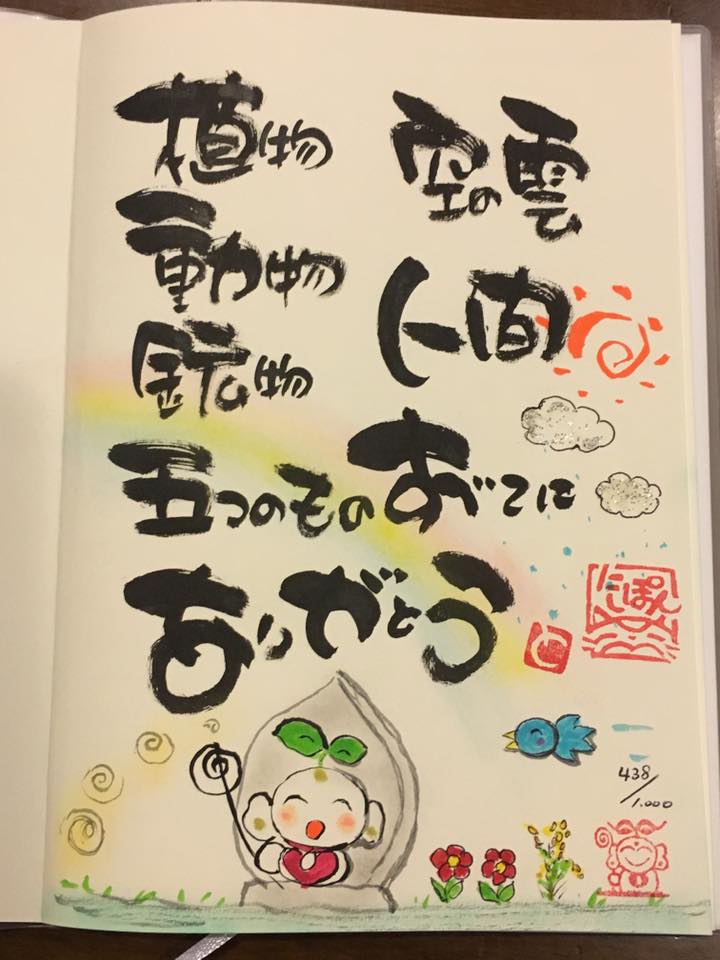 植物
動物
鉱物
空の雲
人間
五つのものすべてに
ありがとう
438/1.000